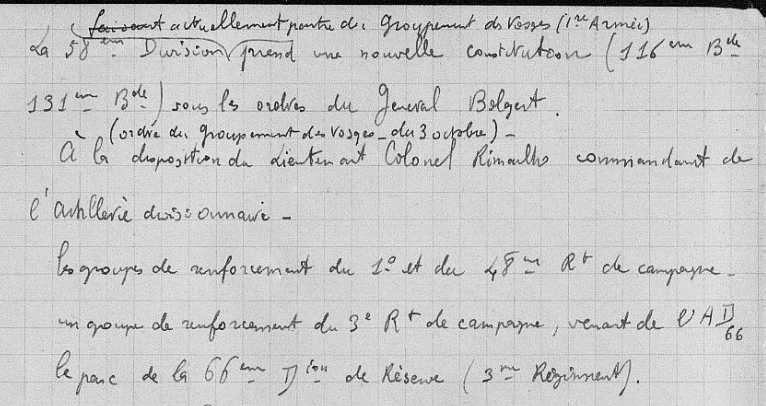 faisant actuellement partie du Groupement des Vosges (1re Armée)
La 58eme Division prend une nouvelle constitution (116eme Bde
131eme Bde) sous les ordres du General Bolgert.
(ordre du groupement des Vosges - du 3 octobre) -
à la disposition du Lieutenant Colonel Rimailho commandant de
l'artillerie divisionnaire -
les groupes de renforcement du 1o et du 48eme Rt de campagne -
un groupe de renforcement du 3e Rt de campagne, venant de l'AD66
le parc de la 66eme Dion de Réserve (3me Régiment).